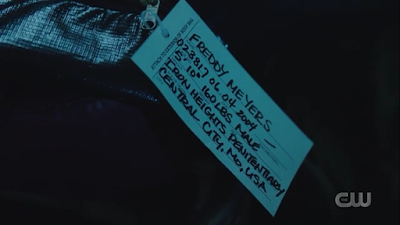 FREDDY MEYERS
023817 06 04 2004
5' 10" 160LBS MALE
IRON HEIGHTS PENITENTIARY
CENTRAL CITY, MO, USA
CW